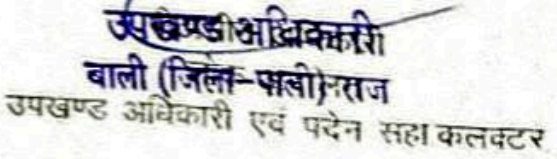 उपखण्ड अधिकारी
बाली (जिला-पाली) राज
उपखण्ड अधिकारी एवं पदेन सहा कलक्टर